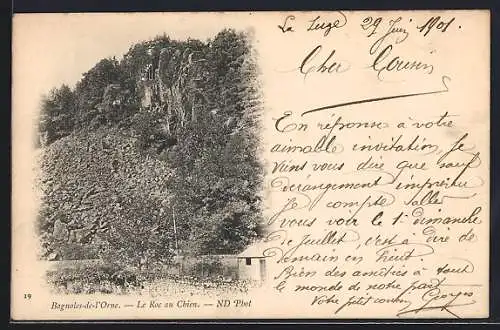 La Suze 29 Juin 1901.
Cher Cousin
En réponse à votre
aimable invitation, je
viens vous dire que sauf
dérangement imprévu
Je compte aller
vous voir le 1er dimanche
de Juillet, c'est à dire de
demain en huit
Bien des amitiés à tout
le monde de notre part
Votre petit cousin Georges
19
Bagnoles-de-l'Orne. — Le Roc au Chien. — ND Phot